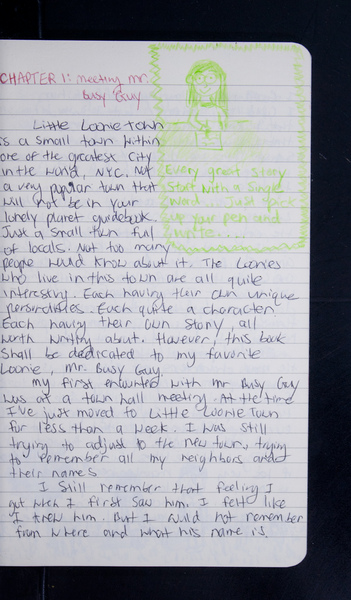 CHAPTER 1: meeting mr.
Busy Guy
Every great story
start with a single
word... Just pick
up your pen and
write....
Little Loonie Town
is a small town within
one of the greatest city
in the world, NYC. Not
a very popular town that
will not be in your
lonely planet guidebook.
Just a small town full
of locals. Not too many
people would know about it. The Loonies
who live in this town are all quite
interesting. Each having their own unique
personalities. Each quite a character
Each having their own story, all
worth writing about. However, this book
shall be dedicated to my favorite
Loonie, Mr. Busy Guy.
my first encounter with Mr Busy Guy
was at a town hall meeting. At the time
I've just moved to Little Loonie Town
for less than a week. I was still
trying to adjust to the new town, trying
to remember all my neighbors and
their names
I still remember that feeling I
got when I first saw him. I felt like
I knew him. But I could not remember
from where and what his name is.